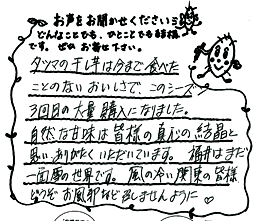 お声をお聞かせください
どんなことでも、ひとことでも結構
です。ぜひ お寄せ下さい。
タツマの干し芋は今まで食べた
ことのないおいしさで、このシーズン
3回目の大量購入になりました。
自然な甘味は皆様の真心の結晶と
思い、ありがたくいただいています。福井はまだ
一面雪の世界です。風の冷い関東の皆様
どうぞお風邪など召しませんように♡